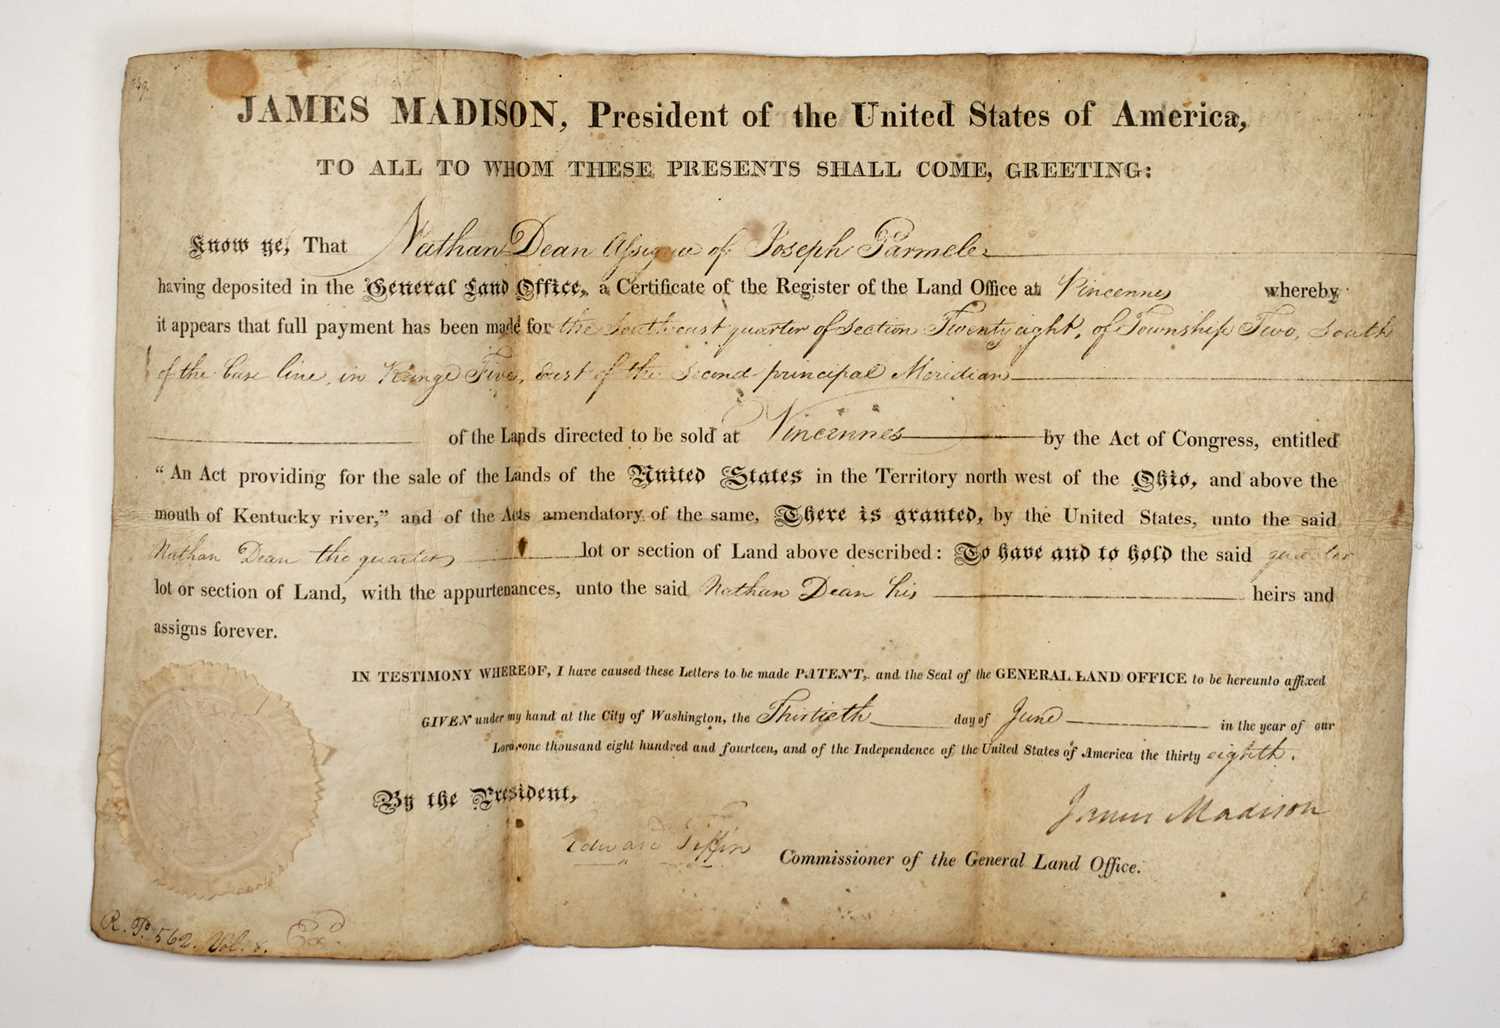 JAMES MADISON, President of the United States of America,
TO ALL TO WHOM THESE PRESENTS SHALL COME, GREETING:
Know ye, That Nathan Dean Assignee of Joseph Parmele
having deposited in the General Land Office, a Certificate of the Register of the Land Office at Vincennes whereby
it appears that full payment has been made for the South east quarter of section Twenty eight, of Township Two, South
of the base line, in Range Five, East of the Second principal Meridian
of the Lands directed to be sold at Vincennes by the Act of Congress, entitled
“An Act providing for the sale of the Lands of the United States in the Territory north west of the Ohio, and above the
mouth of Kentucky river,” and of the Acts amendatory of the same, There is granted, by the United States, unto the said
Nathan Dean the quarter lot or section of Land above described: To have and to hold the said quarter
lot or section of Land, with the appurtenances, unto the said Nathan Dean his heirs and
assigns forever.
IN TESTIMONY WHEREOF, I have caused these Letters to be made PATENT, and the Seal of the GENERAL LAND OFFICE to be hereunto affixed
GIVEN under my hand at the City of Washington, the Thirtieth day of June in the year of our
Lord one thousand eight hundred and fourteen, and of the Independence of the United States of America the thirty eighth.
By the President,
James Madison
Edward Tiffin Commissioner of the General Land Office.
R. P. 562. Vol. 8. Exd.